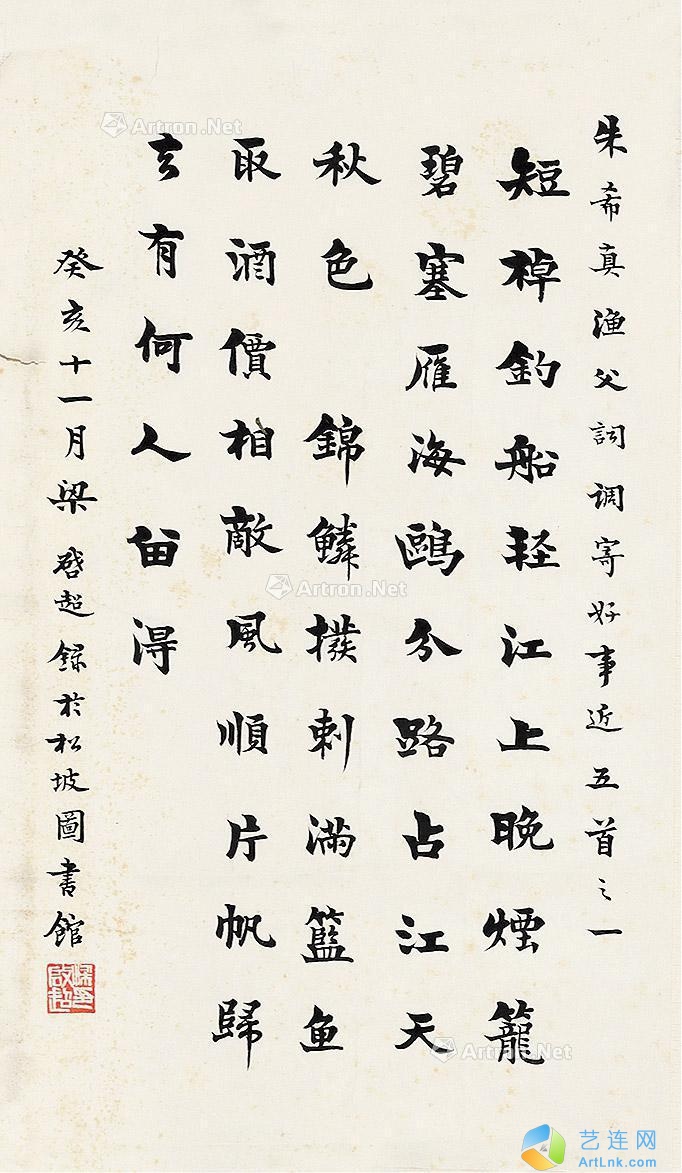 朱希真漁父詞调寄好事近五首之一
短棹釣船轻江上晚煙籠
碧塞雁海鷗分路占江天
秋色 錦鱗撥刺滿籃鱼
取酒價相敵風順片帆歸
去有何人畱得
癸亥十一月梁啓超錄於松坡圖書館
Artron.Net
Artron.Net
Artron.Net
艺连网
ArtLnk.com